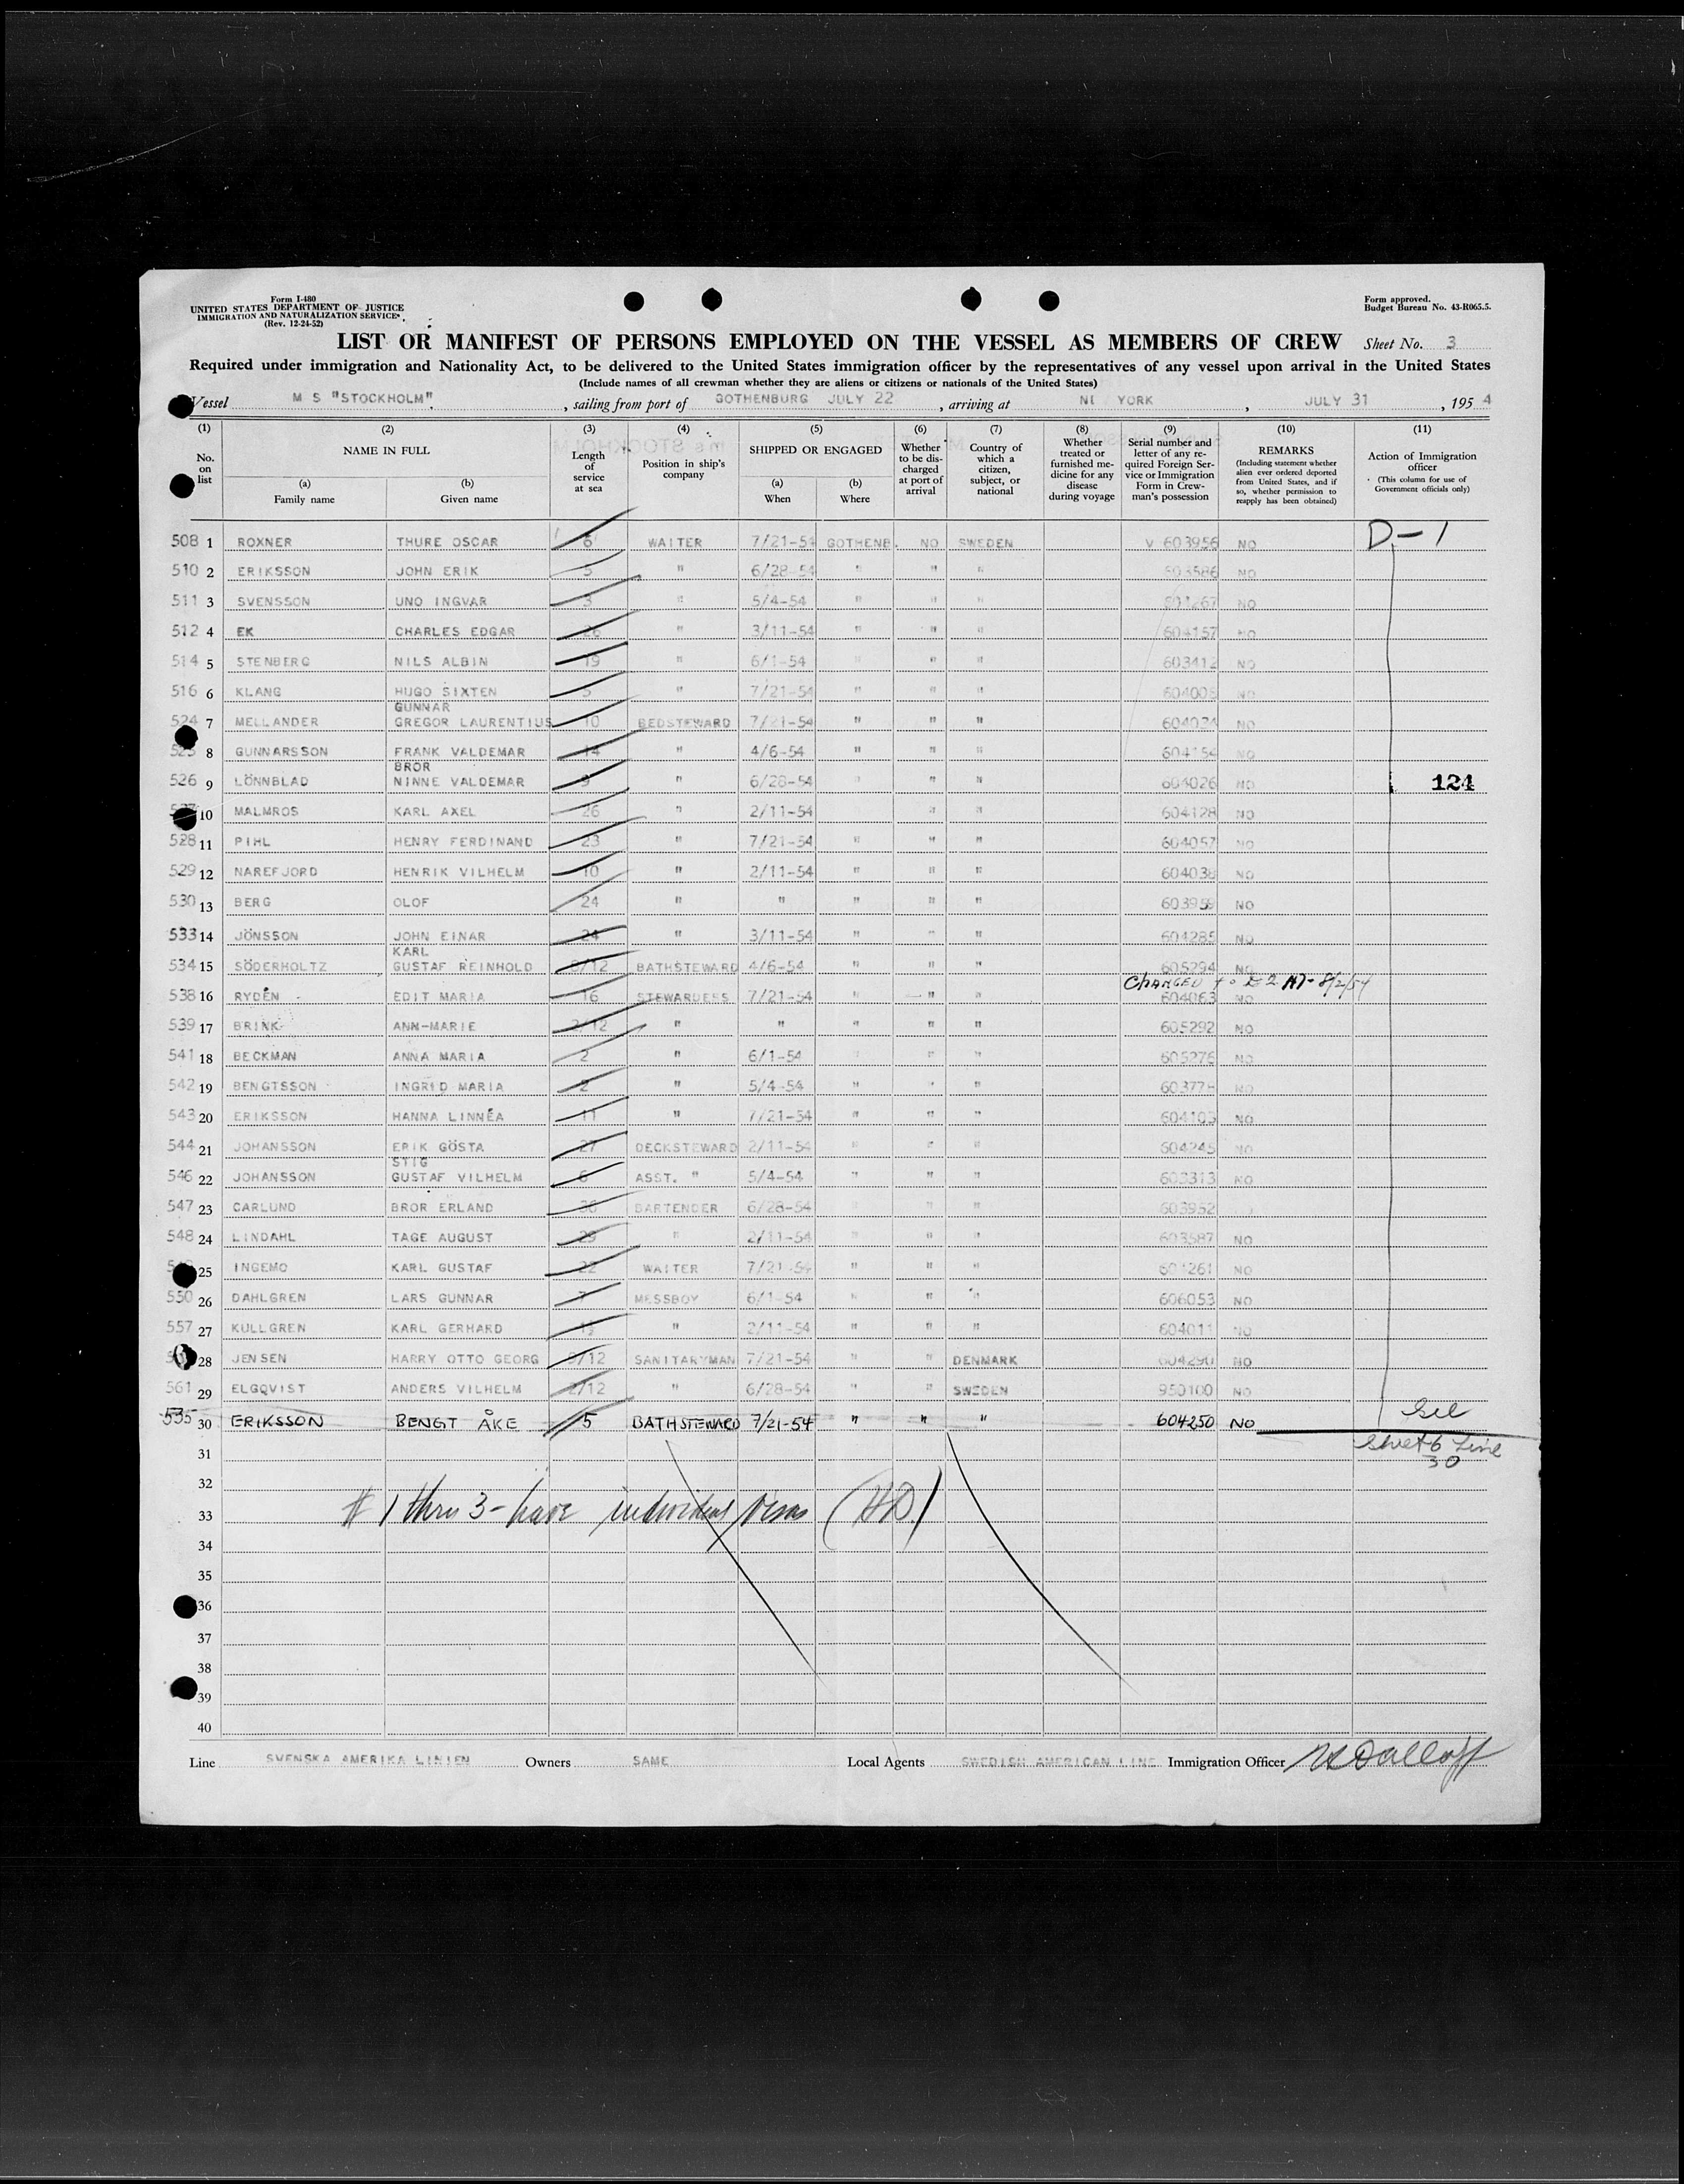 Form I-480
UNITED STATES DEPARTMENT OF JUSTICE
IMMIGRATION AND NATURALIZATION SERVICE
(Rev. 12-24-52)
Form approved.
Budget Bureau No. 43-R065.5.
LIST OR MANIFEST OF PERSONS EMPLOYED ON THE VESSEL AS MEMBERS OF CREW Sheet No. 3
Required under immigration and Nationality Act, to be delivered to the United States immigration officer by the representatives of any vessel upon arrival in the United States
(Include names of all crewman whether they are aliens or citizens or nationals of the United States)
Vessel M S "STOCKHOLM", sailing from port of GOTHENBURG JULY 22, arriving at YORK, JULY 31, 1954
(1) (2) (3) (4) (5) (6) (7) (8) (9) (10) (11)
No. on list
NAME IN FULL
(a) Family name
(b) Given name
Length of service at sea
Position in ship's company
SHIPPED OR ENGAGED
(a) When
(b) Where
Whether to be discharged at port of arrival
Country of which a citizen, subject, or national
Whether treated or furnished medicine for any disease during voyage
Serial number and letter of any required Foreign Service or Immigration Form in Crewman's possession
REMARKS
(Including statement whether alien ever ordered deported from United States, and if so, whether permission to reapply has been obtained)
Action of Immigration officer
(This column for use of Government officials only)
508 1 ROXNER THURE OSCAR 6 WAITER 7/21-54 GOTHENB. NO SWEDEN V 603956 NO D-1
510 2 ERIKSSON JOHN ERIK 5 " 6/28-54 " " " 603586 NO
511 3 SVENSSON UNO INGVAR 3 " 5/4-54 " " " NO
512 4 EK CHARLES EDGAR 26 " 3/11-54 " " " 604157 NO
514 5 STENBERG NILS ALBIN 19 " 6/1-54 " " " 603412 NO
516 6 KLANG HUGO SIXTEN 5 " 7/21-54 " " " NO
GUNNAR
524 7 MELLANDER GREGOR LAURENTIUS 10 BEDSTEWARD 7/21-54 " " " NO
8 GUNNARSSON FRANK VALDEMAR 14 " 4/6-54 " " " 604154 NO
BROR
526 9 LÖNNBLAD NINNE VALDEMAR 9 " 6/28-54 " " " 604026 NO 124
10 MALMROS KARL AXEL 26 " 2/11-54 " " 604128 NO
528 11 PIHL HENRY FERDINAND 23 " 7/21-54 " " " 604057 NO
529 12 NAREFJORD HENRIK VILHELM 10 " 2/11-54 " " " NO
530 13 BERG OLOF 24 " " " " " NO
533 14 JÖNSSON JOHN EINAR 24 " 3/11-54 " " " 604285 NO
KARL
534 15 SÖDERHOLTZ GUSTAF REINHOLD BATHSTEWARD 4/6-54 " " " 605294 NO
CHANGED to 8/2/54
538 16 RYDÉN EDIT MARIA 16 STEWARDESS 7/21-54 " " " 604063 NO
539 17 BRINK ANN-MARIE " " " " " 605292 NO
541 18 BECKMAN ANNA MARIA 2 " 6/1-54 " " " 605276 NO
542 19 BENGTSSON INGRID MARIA 2 " 5/4-54 " " " NO
543 20 ERIKSSON HANNA LINNÉA 11 " 7/21-54 " " " 604103 NO
544 21 JOHANSSON ERIK GÖSTA 27 DECKSTEWARD 2/11-54 " " " 604245 NO
STIG
546 22 JOHANSSON GUSTAF VILHELM 6 ASST. " 5/4-54 " " " 603313 NO
547 23 CARLUND BROR ERLAND BARTENDER 6/28-54 " " " 603952
548 24 LINDAHL TAGE AUGUST " 2/11-54 " " " 603587 NO
25 INGEMO KARL GUSTAF 22 WAITER 7/21-54 " " " NO
550 26 DAHLGREN LARS GUNNAR 7 MESSBOY 6/1-54 " " " 606053 NO
557 27 KULLGREN KARL GERHARD " 2/11-54 " " " 604011 NO
28 JENSEN HARRY OTTO GEORG SANITARYMAN 7/21-54 " " DENMARK 604290 NO
561 29 ELGQVIST ANDERS VILHELM 2/12 " 6/28-54 " " SWEDEN 950100 NO
535 30 ERIKSSON BENGT ÅKE 5 BATHSTEWARD 7/21-54 " " " 604250 NO See
Sheet 6 Line
30
31
32
33 # 1 thru 3 - have individual visas
34
35
36
37
38
39
40
Line SVENSKA AMERIKA LINIEN Owners SAME Local Agents SWEDISH AMERICAN LINE Immigration Officer